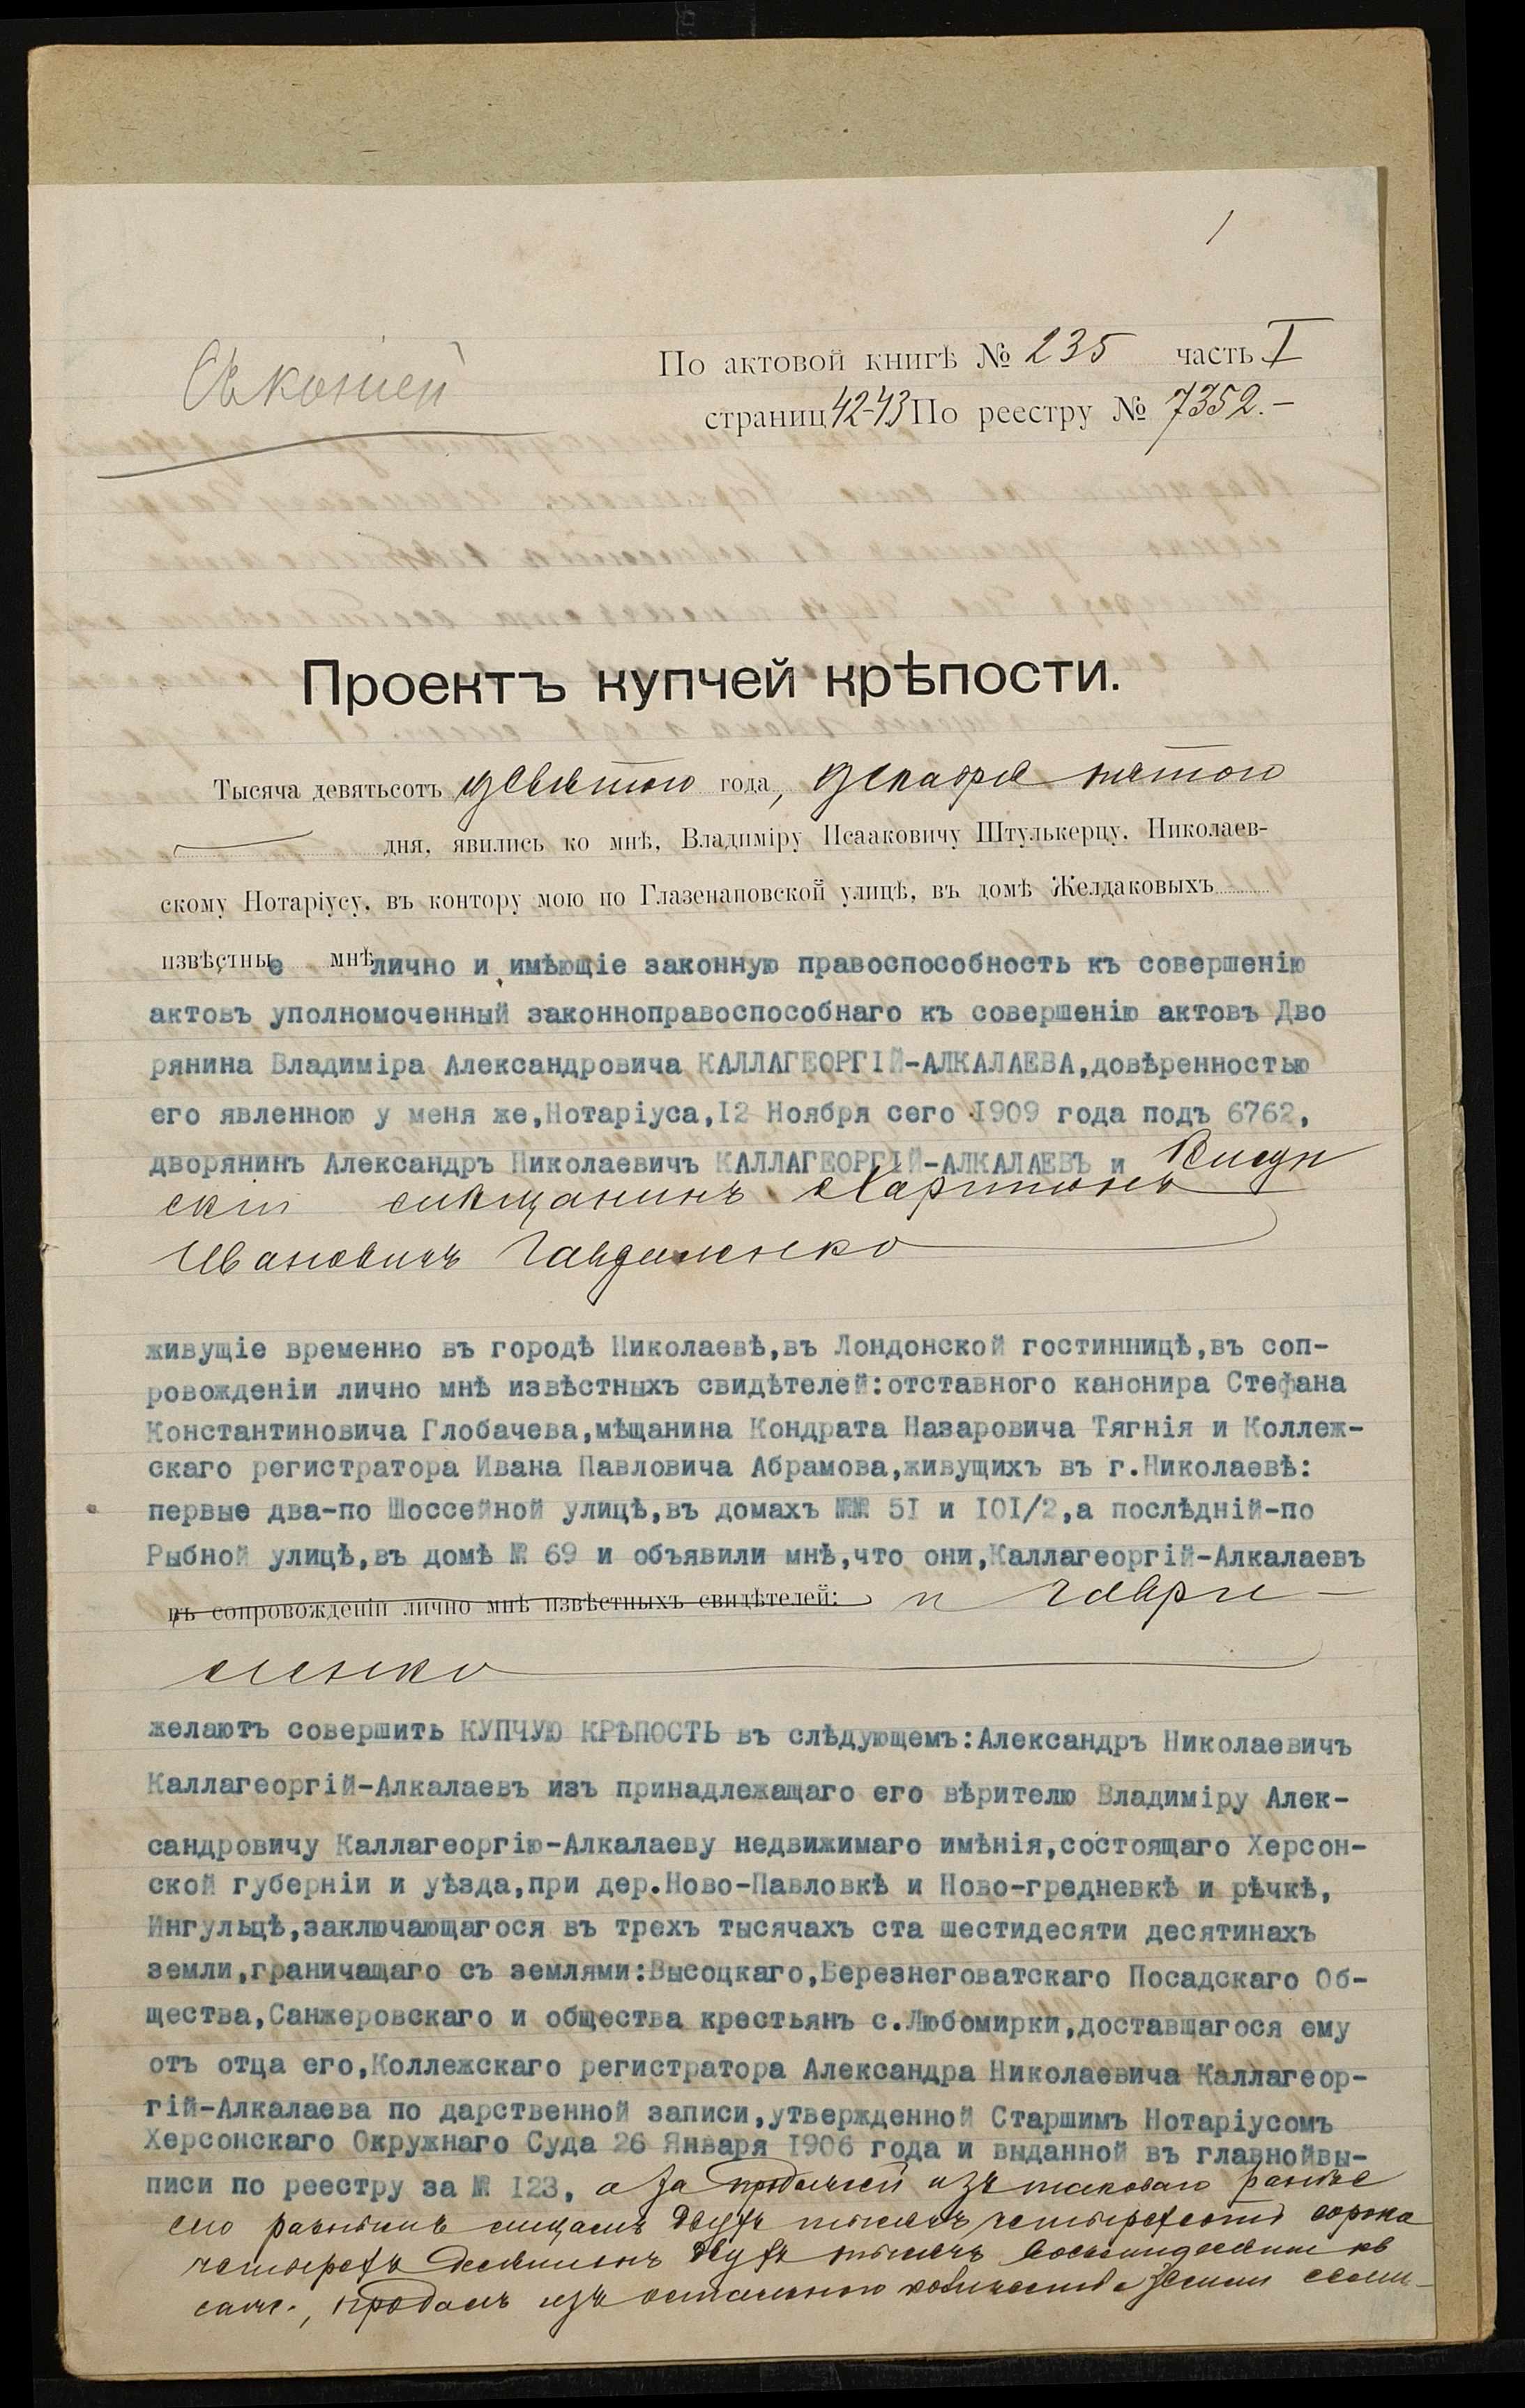 1
Съ копіей
По актовой книгѣ № 235 часть I
страниц 42-43 По реестру № 7352.-
Проектъ купчей крѣпости.
Тысяча девятьсотъ девятого года, декабря пятого
дня, явились ко мнѣ, Владиміру Исааковичу Штулькерцу, Николаев-
скому Нотаріусу, въ контору мою по Глазенаповской улицѣ, въ домѣ Желдаковыхъ
извѣстные мнѣ лично и имѣющіе законную правоспособность къ совершенію
актовъ уполномоченный законноправоспособнаго къ совершенію актовъ Дво
рянина Владиміра Александровича КАЛЛАГЕОРГІЙ-АЛКАЛАЕВА,довѣренностью
его явленною у меня же,Нотаріуса,I2 Ноября сего I909 года подъ 6762,
дворянинъ Александръ Николаевичъ КАЛЛАГЕОРГІЙ-АЛКАЛАЕВЪ и Висун
скій мѣщанинъ Харитонъ
Ивановичъ Гавриленко
живущіе временно въ городѣ Николаевѣ,въ Лондонской гостинницѣ,въ соп-
ровожденіи лично мнѣ извѣстныхъ свидѣтелей:отставного канонира Стефана
Константиновича Глобачева,мѣщанина Кондрата Назаровича Тягнія и Коллеж-
скаго регистратора Ивана Павловича Абрамова,живущихъ въ г.Николаевѣ:
первые два-по Шоссейной улицѣ,въ домахъ №№ 5I и I0I/2,а послѣдній-по
Рыбной улицѣ,въ домѣ № 69 и объявили мнѣ,что они,Каллагеоргій-Алкалаевъ
въ сопровожденіи лично мнѣ извѣстныхъ свидѣтелей: и Гаври-
ленко
желаютъ совершить КУПЧУЮ КРѢПОСТЬ въ слѣдующемъ:Александръ Николаевичъ
Каллагеоргій-Алкалаевъ изъ принадлежащаго его вѣрителю Владиміру Алек-
сандровичу Каллагеоргію-Алкалаеву недвижимаго имѣнія,состоящаго Херсон-
ской губерніи и уѣзда,при дер.Ново-Павловкѣ и Ново-гредневкѣ и рѣчкѣ,
Ингульцѣ,заключающагося въ трехъ тысячахъ ста шестидесяти десятинахъ
земли,граничащаго съ землями:Высоцкаго,Березнеговатскаго Посадскаго Об-
щества,Санжеровскаго и общества крестьянъ с.Любомирки,доставшагося ему
отъ отца его,Коллежскаго регистратора Александра Николаевича Каллагеор-
гій-Алкалаева по дарственной записи,утвержденной Старшимъ Нотаріусомъ
Херсонскаго Окружнаго Суда 26 Января I906 года и выданной въ главнойвы-
писи по реестру за № I23, а за продажей изъ таковаго ранѣе
сего разнымъ лицамъ двухъ тысячъ четырехсотъ сорока
четырехъ десятинъ двухъ тысячъ восьмидесяти кв
саж., продалъ изъ остального количества земли